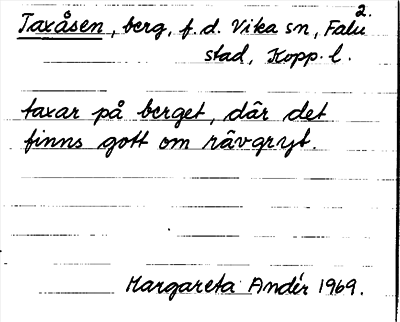 2.
Taxåsen, berg, f.d. Vika sn, Falu
stad, Kopp. l.
taxar på berget, där det
finns gott om rävgryt.
Margareta Andér 1969.